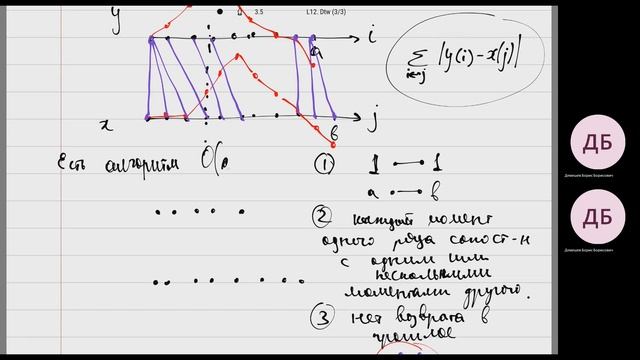 3.5
L12. Dtw (3/3)
y
i
a
∑ |y(i)-x(j)|
i↔j
x
j
b
Есть алгоритм O(
① 1 •—• 1
a •—• b
② каждый момент
одного ряда сопост-н
с одним или
несколькими
моментами другого.
③ нет возврата в
прошлое
ДБ
Демешев Борис Борисович
ДБ
Демешев Борис Борисович